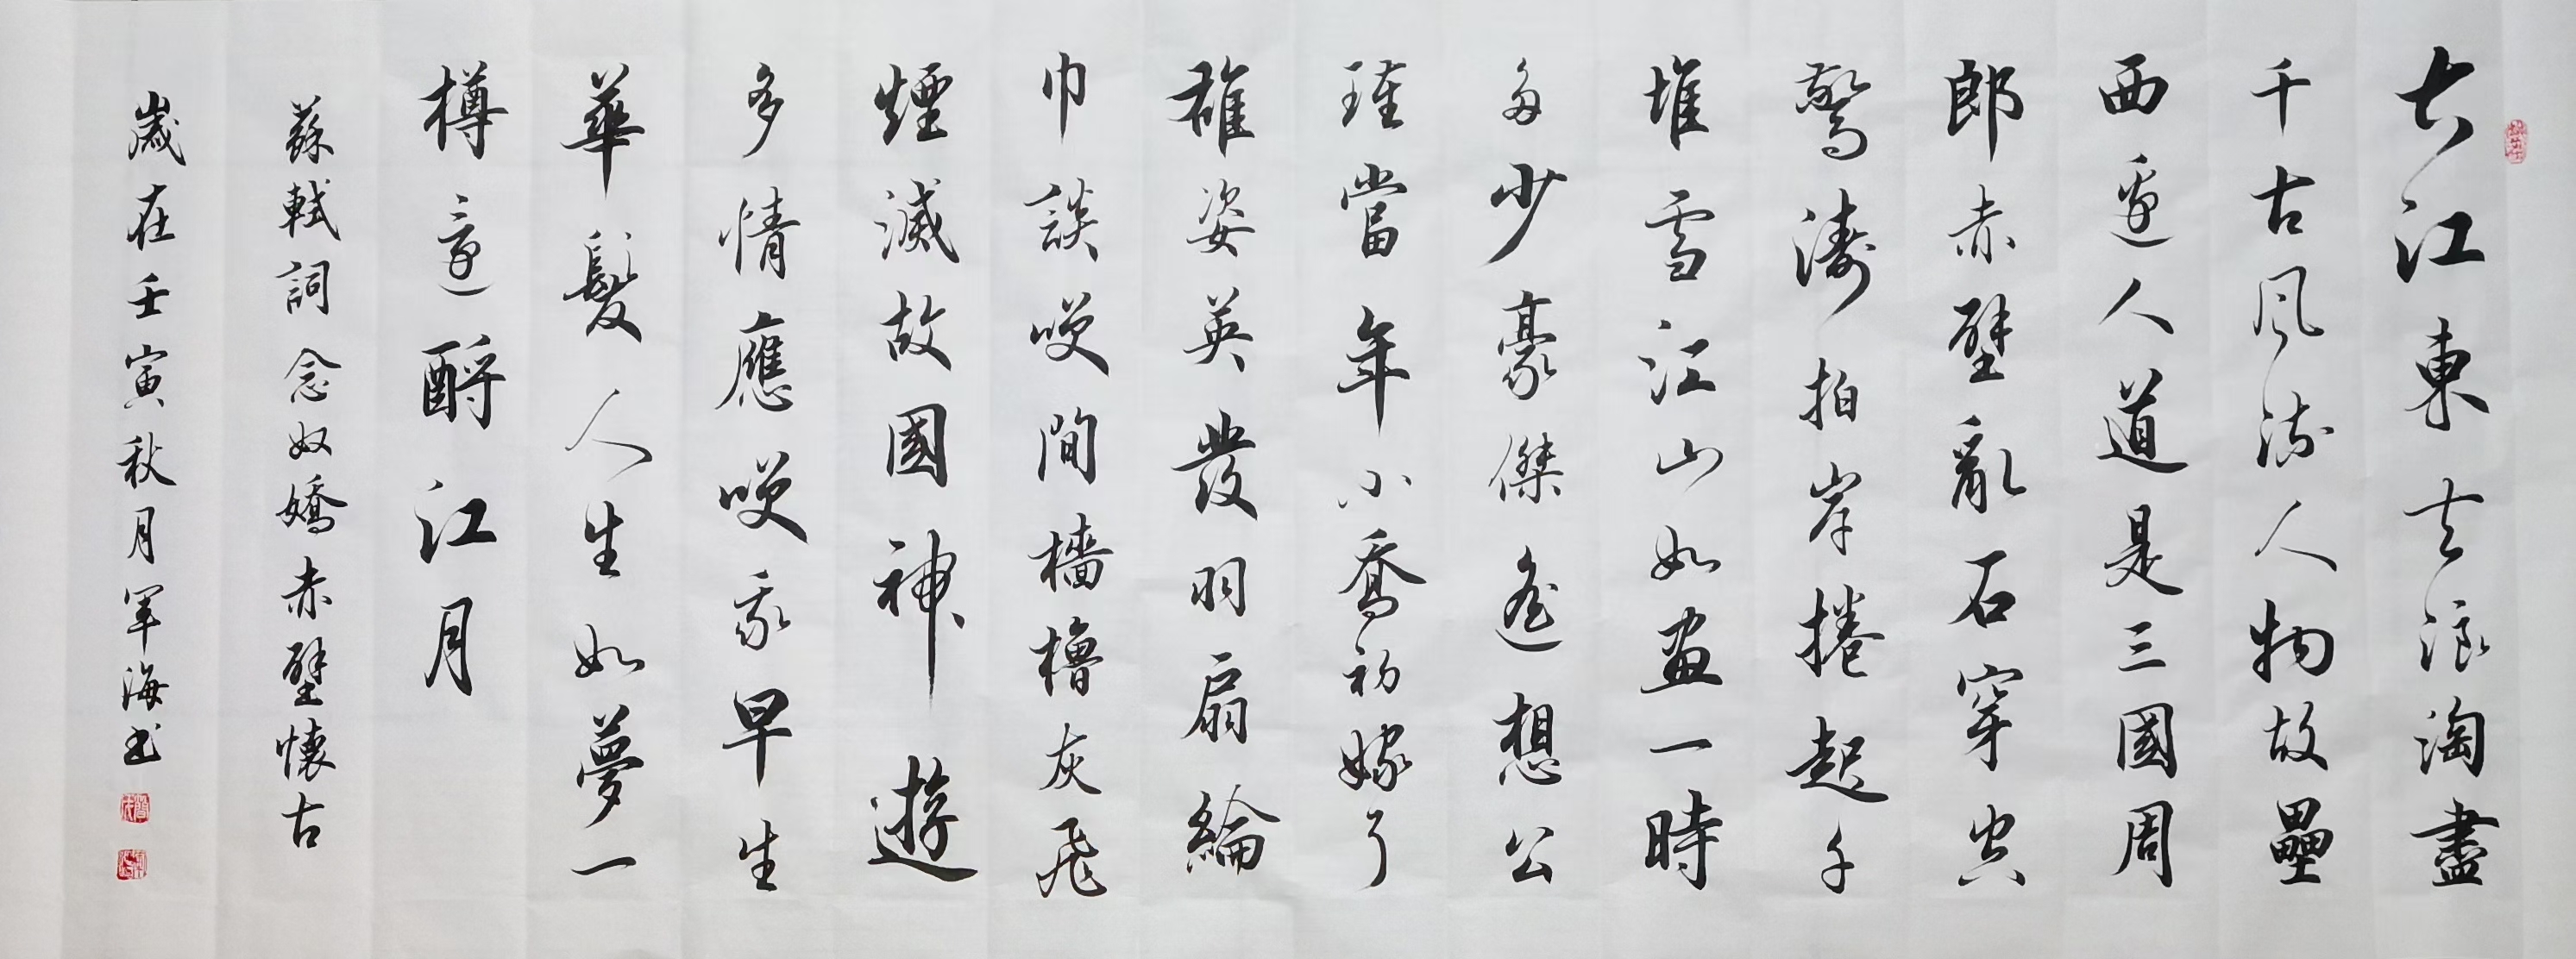 大江東去浪淘盡
千古風流人物故壘
西邊人道是三國周
郎赤壁亂石穿空
驚濤拍岸捲起千
堆雪江山如畫一時
多少豪傑遙想公
瑾當年小喬初嫁了
雄姿英發羽扇綸
巾談咲間檣櫓灰飛
煙滅故國神遊
多情應咲我早生
華髮人生如夢一
樽還酹江月
蘇軾詞念奴嬌赤壁懷古
歲在壬寅秋月軍海书